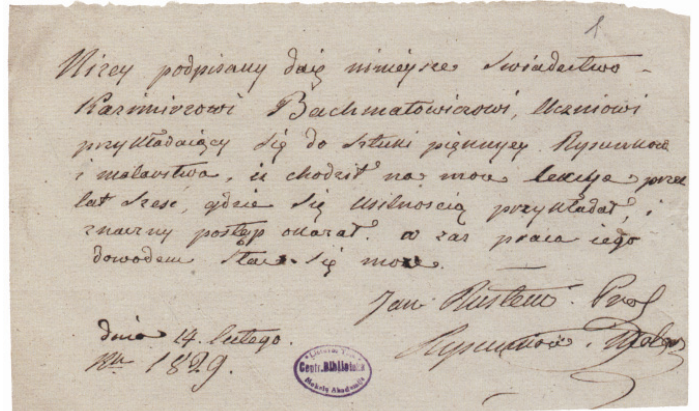 1
Niżey podpisany daię ninieysze swiadectwo
Kazimirzowi Bachmatowiczowi, Uczniowi
przykładaiący się do sztuki piękney Rysunków
i malarstwa, iż chodził na moie lekcye przez
lat sześć, gdzie się usilnością przykładał, i
znaczny postęp okazał. a zas praca iego
dowodem stać się może.
Jan Rustem. Prof
Rysunków
dnia 14 lutego.
Rku 1829.
Centr. Biblioteka
Mokslų Akademija